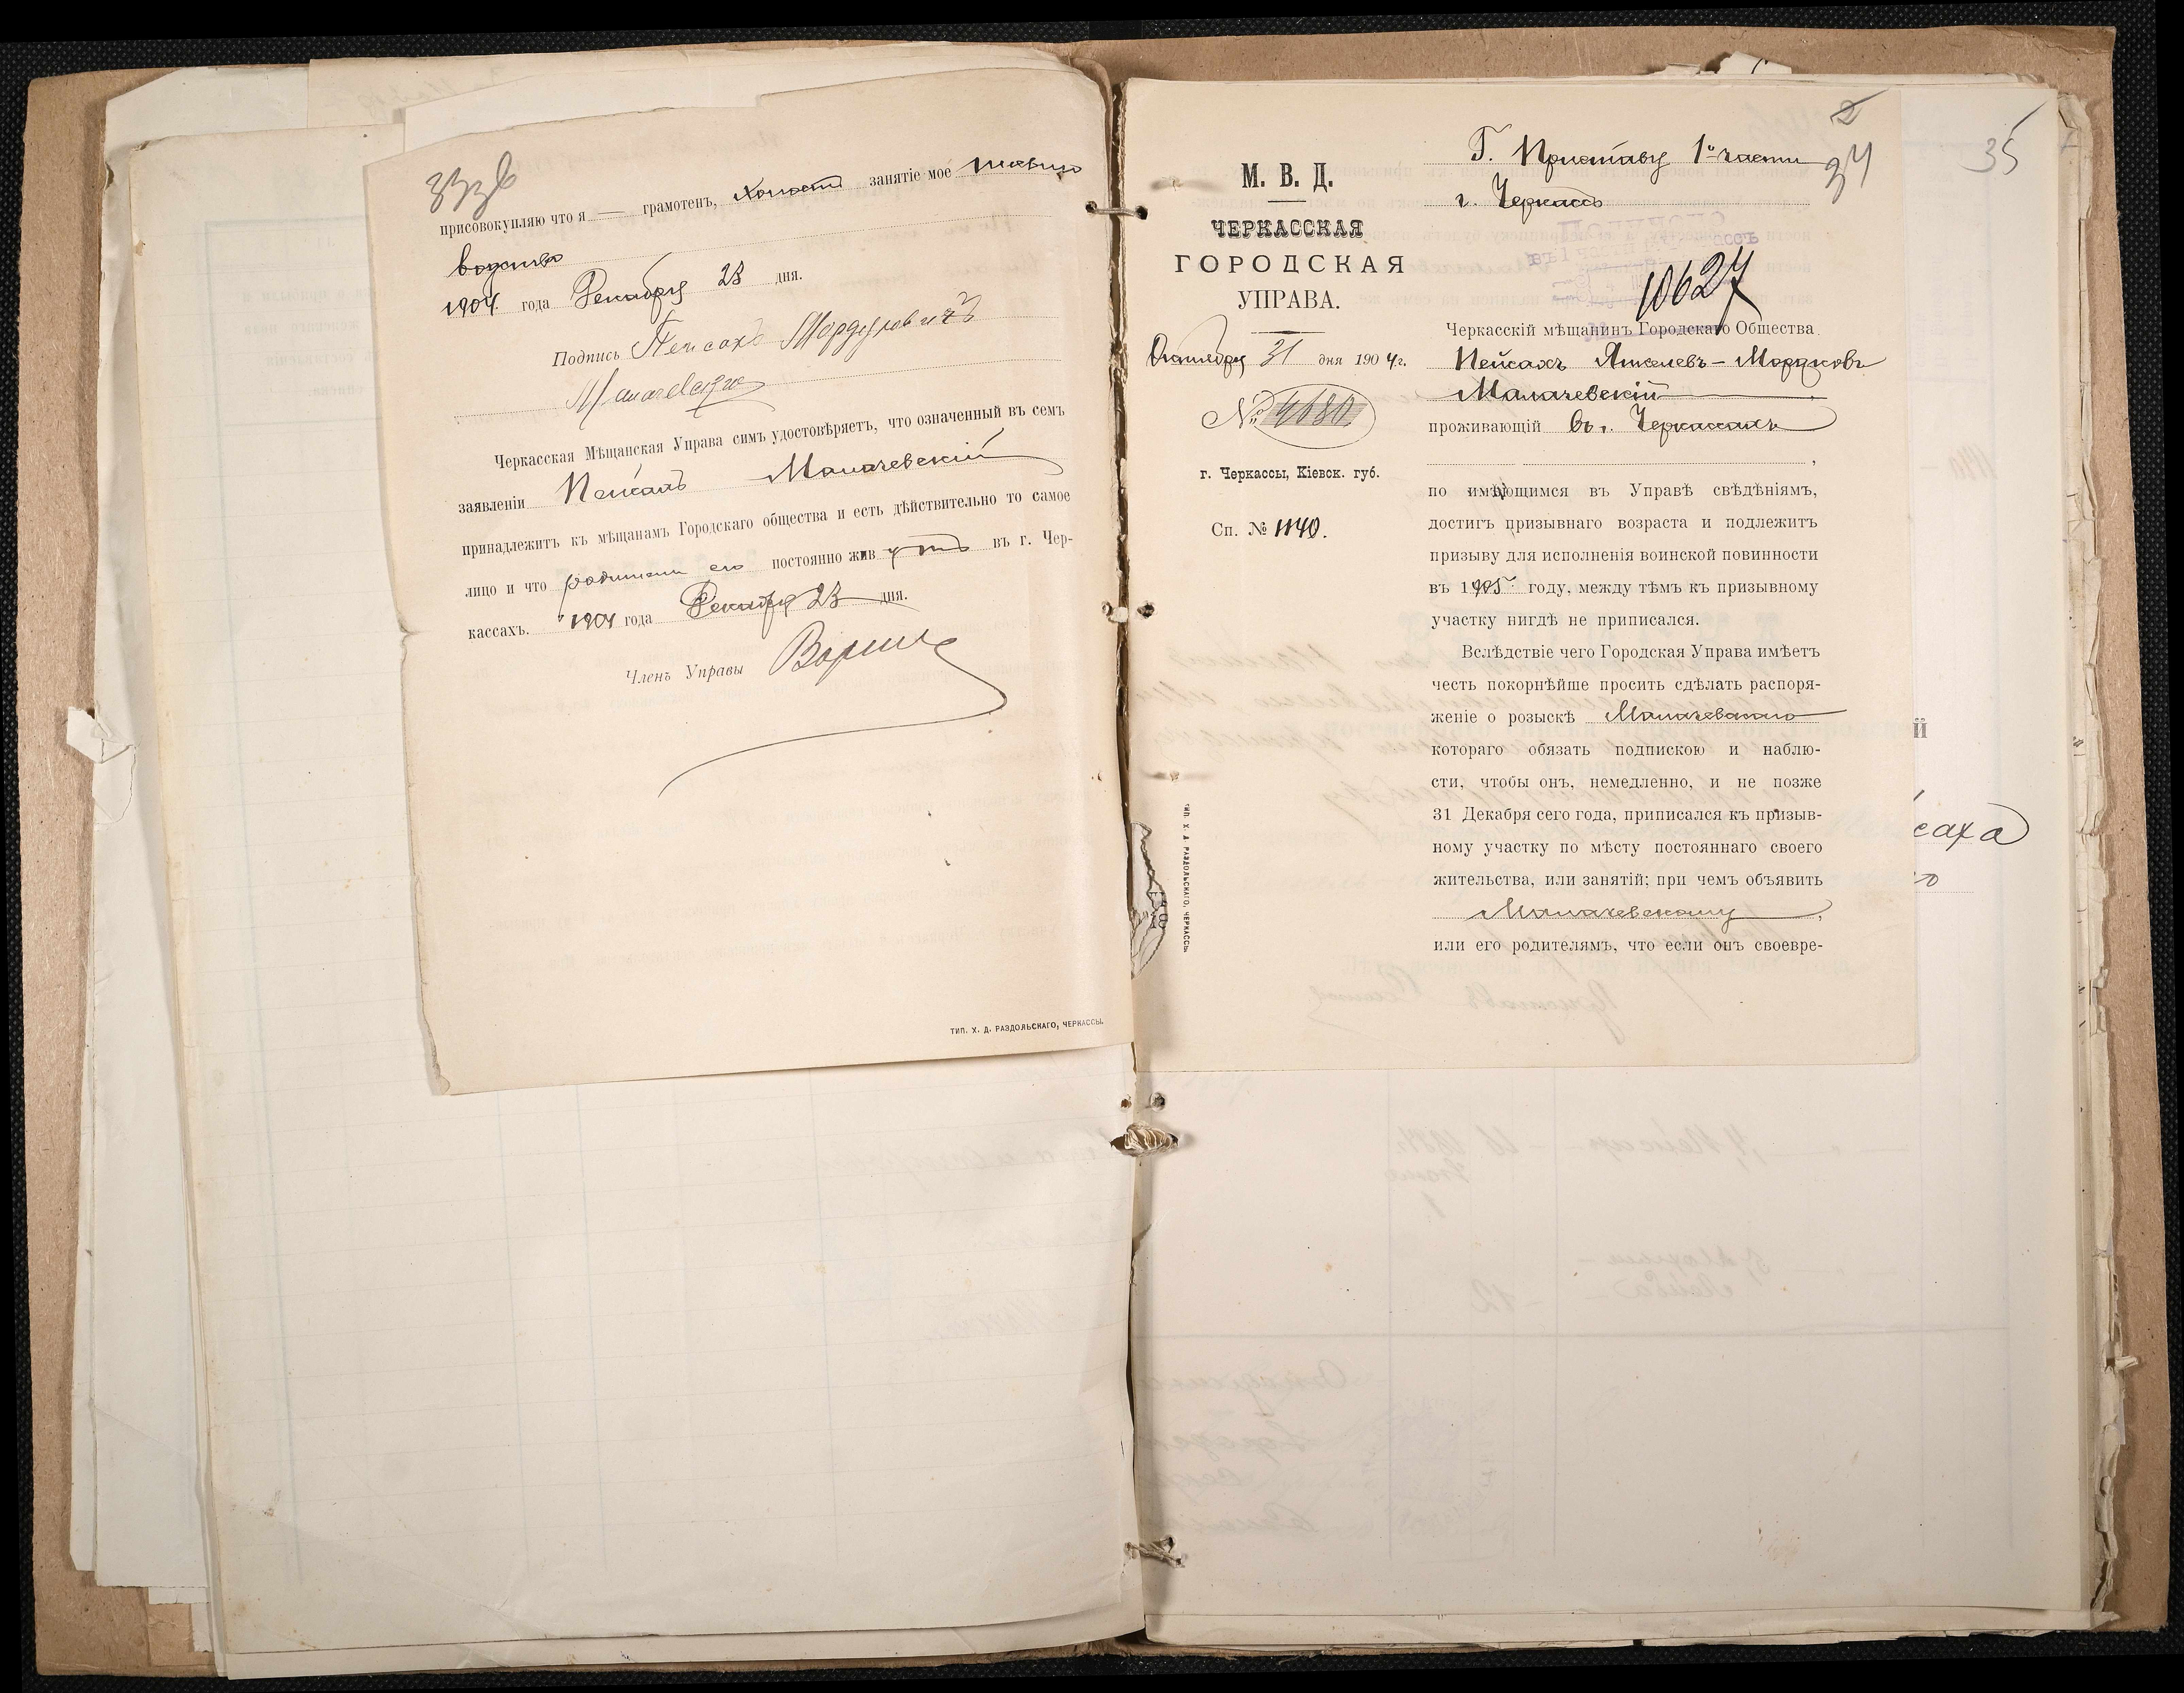 присовокупляю что я — грамотенъ, холостъ занятіе мое
1904 года Декабря 23 дня.
Подпись Пейсахъ Мордуховичъ
Малачевскій
Черкасская Мѣщанская Управа симъ удостовѣряетъ, что означенный въ семъ
заявленіи Пейсахъ Малачевскій
принадлежитъ къ мѣщанамъ Городскаго общества и есть дѣйствительно то самое
лицо и что родители его постоянно живутъ въ г. Чер-
кассахъ. 1904 года Декабря 23 дня.
Членъ Управы
ТИП. Х. Д. РАЗДОЛЬСКАГО, ЧЕРКАССЫ.
2
34
35
Г. Приставу 1й части
г. Черкассъ
М. В. Д.
ЧЕРКАССКАЯ
ГОРОДСКАЯ
УПРАВА.
Октября 31 дня 1904 г.
№ 4680
г. Черкассы, Кіевск. губ.
Сп. № 1140.
10627
Черкасскій мѣщанинъ Городскаго Общества
Пейсахъ Янкелевъ-Мордковъ
Малачевскій
проживающій въ г. Черкассахъ
по имѣющимся въ Управѣ свѣдѣніямъ,
достигъ призывнаго возраста и подлежитъ
призыву для исполненія воинской повинности
въ 1905 году, между тѣмъ къ призывному
участку нигдѣ не приписался.
Вслѣдствіе чего Городская Управа имѣетъ
честь покорнѣйше просить сдѣлать распоря-
женіе о розыскѣ Малачевскаго
котораго обязать подпискою и наблю-
сти, чтобы онъ, немедленно, и не позже
31 Декабря сего года, приписался къ призыв-
ному участку по мѣсту постояннаго своего
жительства, или занятій; при чемъ объявить
Малачевскому,
или его родителямъ, что если онъ своевре-
ТИП. Х. Д. РАЗДОЛЬСКАГО, ЧЕРКАССЫ.